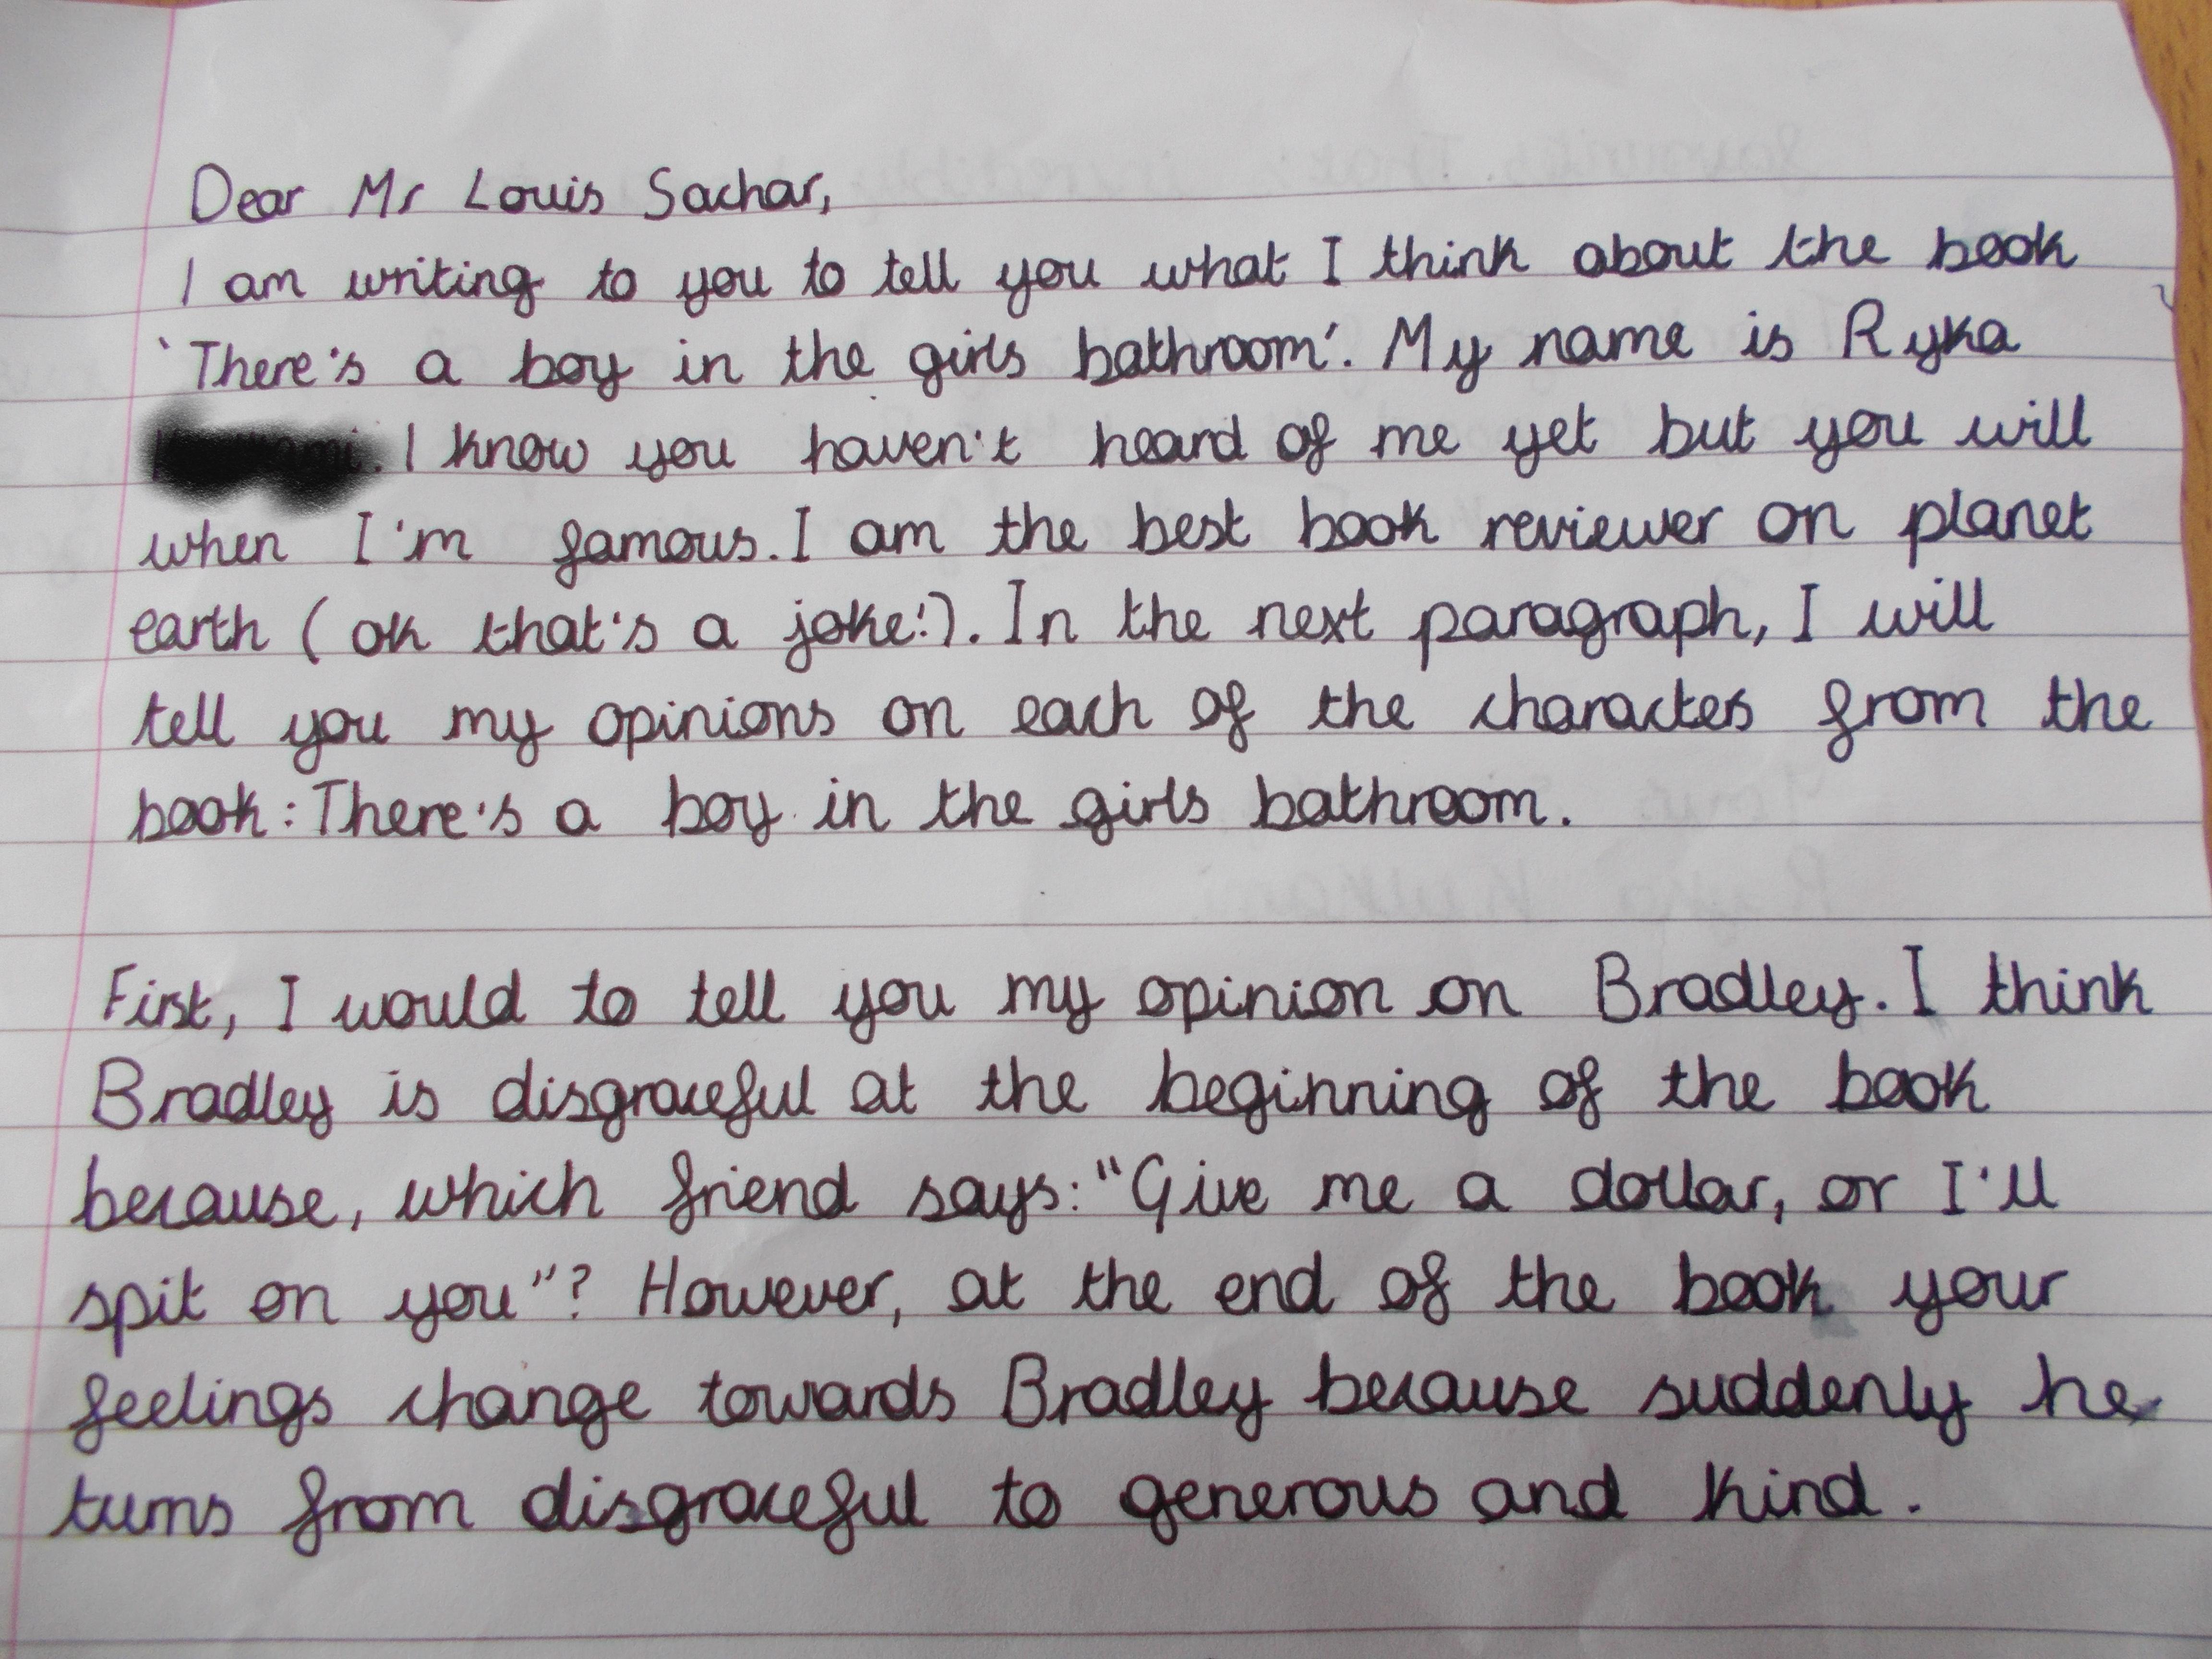 Dear Mr Louis Sachar,
I am writing to you to tell you what I think about the book
'There's a boy in the girls bathroom'. My name is Ryka
I know you haven't heard of me yet but you will
when I'm famous. I am the best book reviewer on planet
earth (ok that's a joke!). In the next paragraph, I will
tell you my opinions on each of the charactes from the
book: There's a boy in the girls bathroom.
First, I would to tell you my opinion on Bradley. I think
Bradley is disgraceful at the beginning of the book
because, which friend says: "Give me a dollar, or I'll
spit on you"? However, at the end of the book your
feelings change towards Bradley because suddenly he
turns from disgraceful to generous and kind.